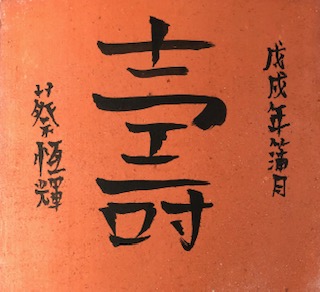 戊戌年蒲月
壽
蔡恆輝